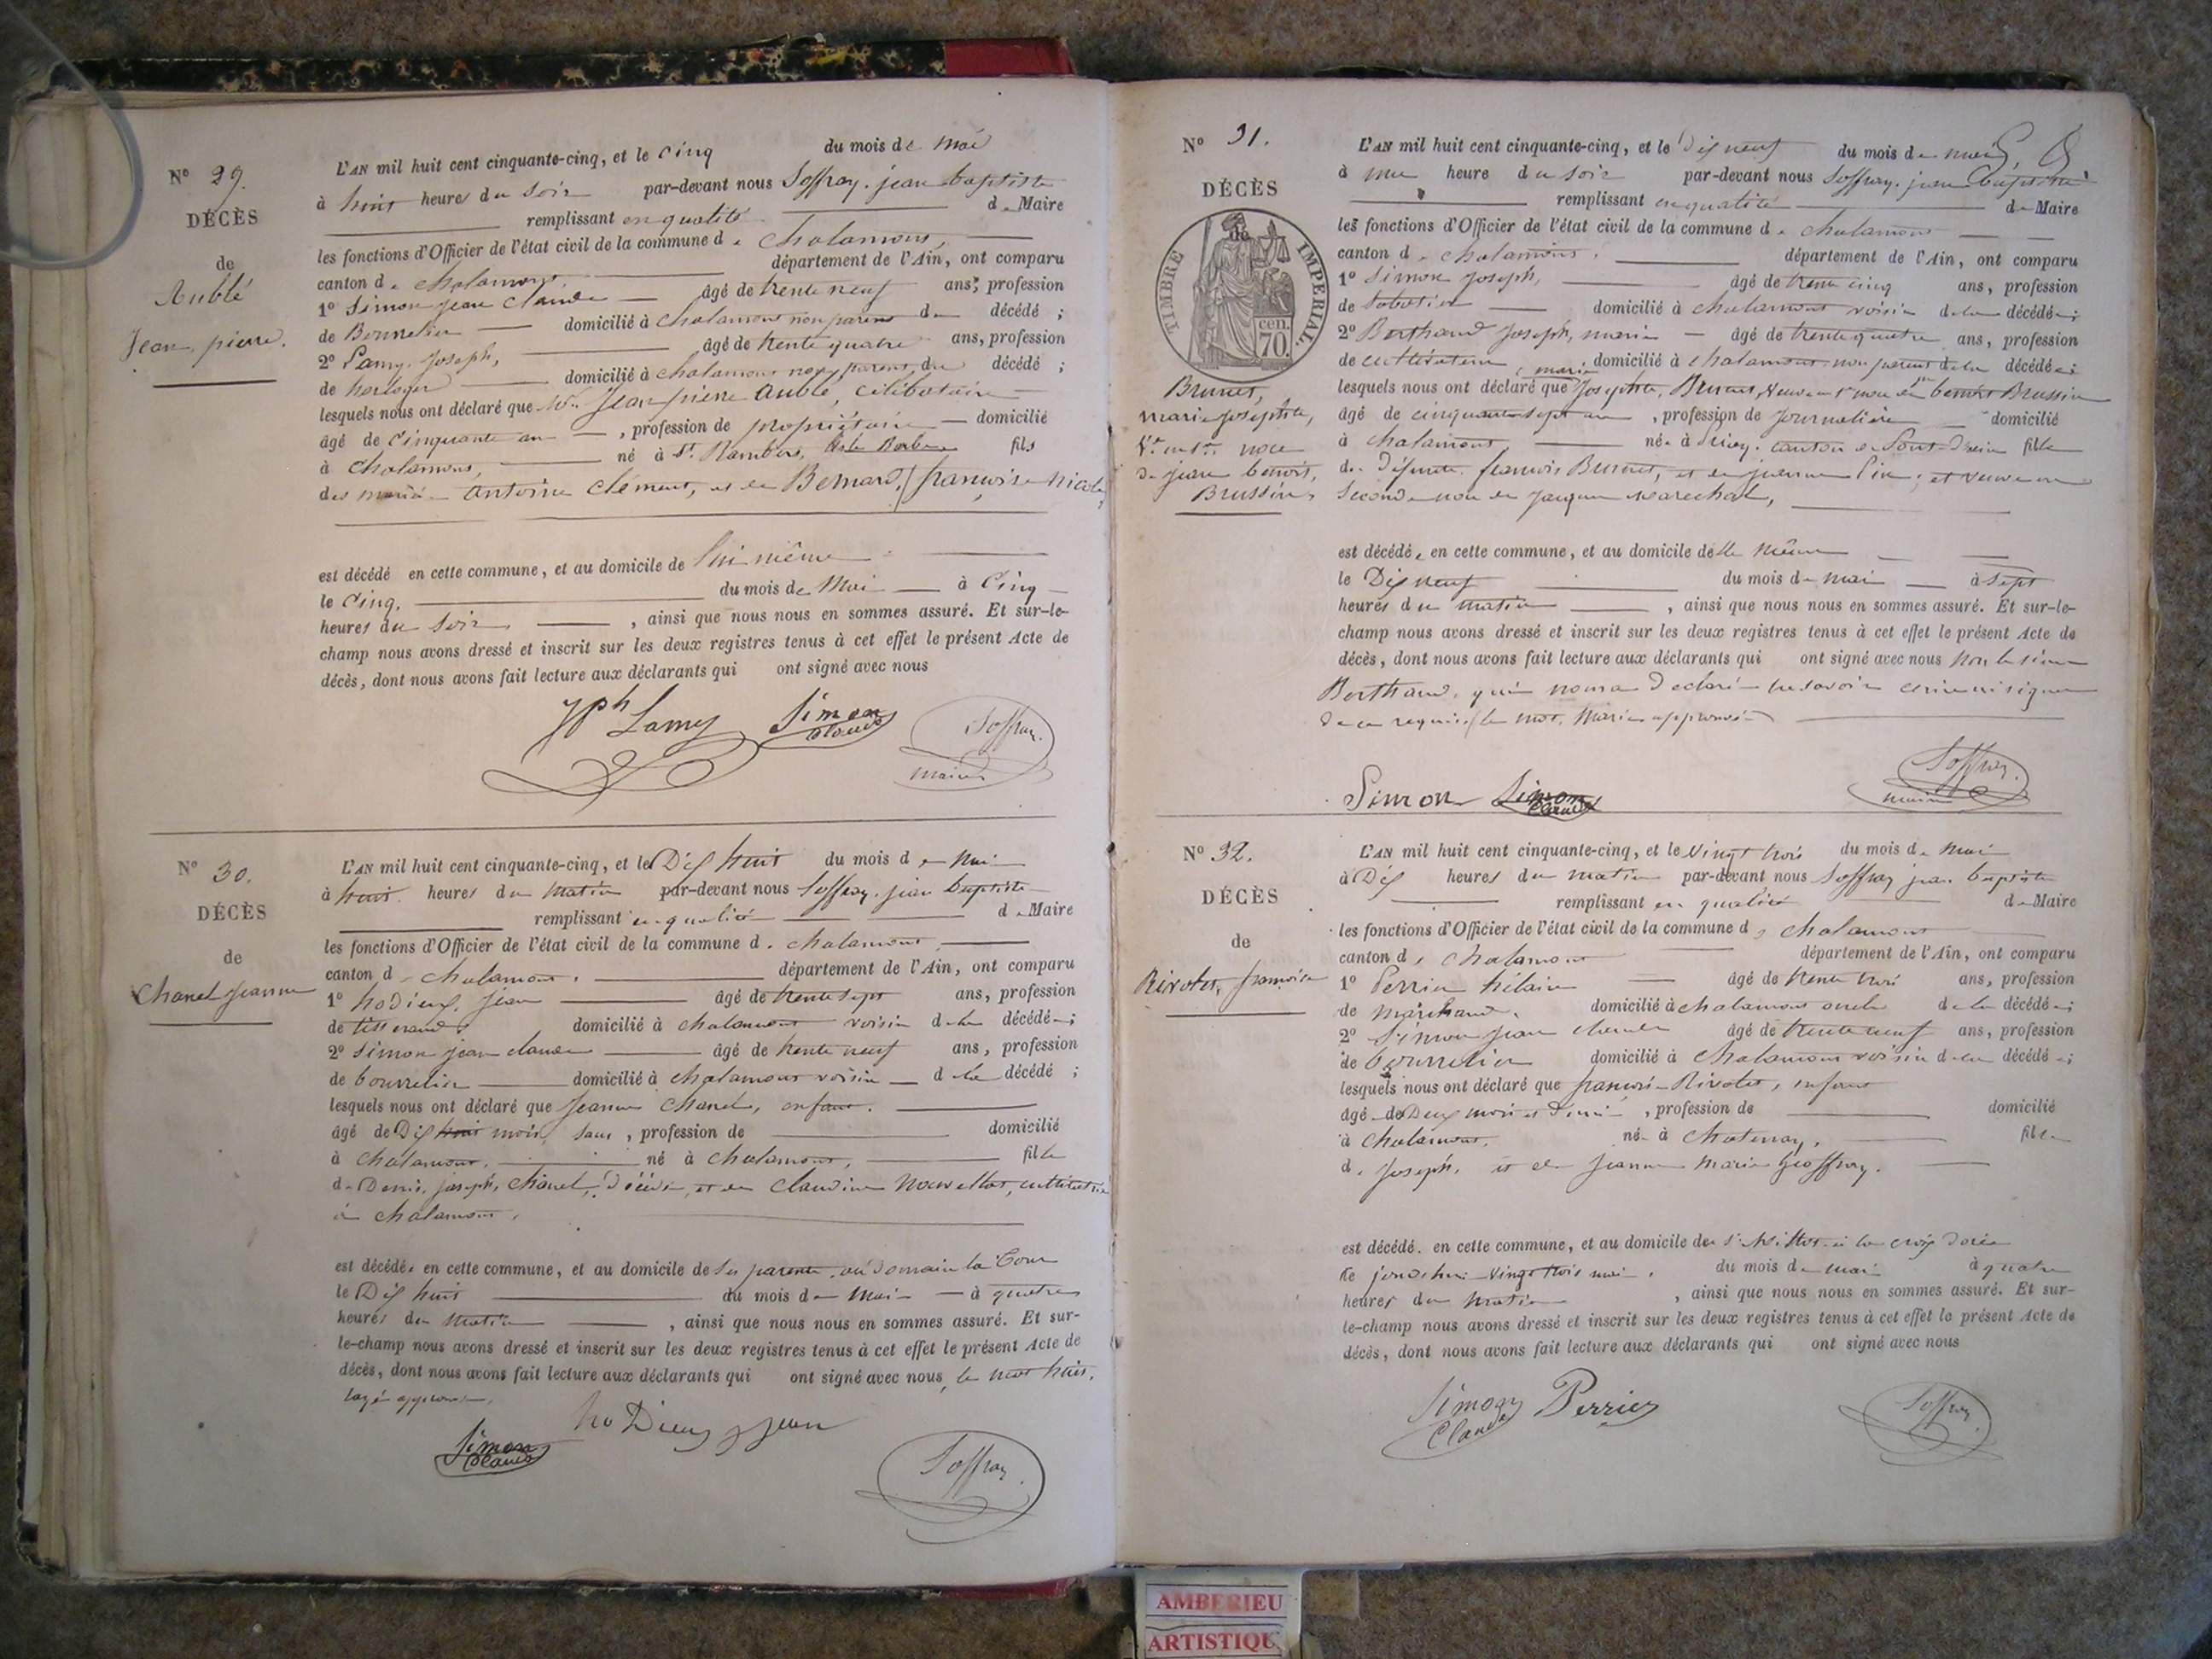 N° 29.
DÉCÈS
de
Aublé
Jean, pierre.
L'AN mil huit cent cinquante-cinq, et le cinq du mois de mai
à huit heures du soir par-devant nous Soffray, jean baptiste
remplissant en qualité de Maire
les fonctions d'Officier de l'état civil de la commune de Chalamont,
canton de Chalamont, département de l'Ain, ont comparu
1° Simon jean Claude âgé de trente neuf ans, profession
de Bourrelier domicilié à Chalamont non parent du décédé ;
2° Lamy, Joseph, âgé de trente quatre ans, profession
de horloger domicilié à chalamont non parent du décédé ;
lesquels nous ont déclaré que Jean pierre Aublé, célibataire
âgé de cinquante an, profession de propriétaire domicilié
à Chalamont, né à St. Rambert, fils
des mariés Antoine Clément, et de Bernard, françoise Nicole,
est décédé en cette commune, et au domicile de lui même
le cinq, du mois de Mai à cinq
heures du soir, ainsi que nous nous en sommes assuré. Et sur-le-
champ nous avons dressé et inscrit sur les deux registres tenus à cet effet le présent Acte de
décès, dont nous avons fait lecture aux déclarants qui ont signé avec nous
Jph Lamy Simon Claude Soffray.
maire
N° 30.
DÉCÈS
de
Chanel Jeanne
L'AN mil huit cent cinquante-cinq, et le Dix huit du mois de Mai
à huit heures du matin par-devant nous Soffray, jean baptiste
remplissant en qualité de Maire
les fonctions d'Officier de l'état civil de la commune de chalamont,
canton de chalamont, département de l'Ain, ont comparu
1° hodieux, jean âgé de trente sept ans, profession
de tisserand, domicilié à chalamont voisin de la décédée ;
2° Simon jean claude âgé de trente neuf ans, profession
de bourrelier domicilié à chalamont voisin de la décédé ;
lesquels nous ont déclaré que Jeanne Chanel, enfant.
âgé de Dix huit mois, sans, profession de domicilié
à chalamont, né à chalamont, fille
de Denis, joseph, Chanel, décédé, et de Claudine
à chalamont,
est décédée en cette commune, et au domicile de ses parents, au domaine la Cour
le Dix huit du mois de Mai à quatre
heures du matin, ainsi que nous nous en sommes assuré. Et sur-
le-champ nous avons dressé et inscrit sur les deux registres tenus à cet effet le présent Acte de
décès, dont nous avons fait lecture aux déclarants qui ont signé avec nous, le mot huit,
rayé approuvé,
hoDieux jean
Simon Claude
Soffray.
N° 31.
DÉCÈS
de
TIMBRE IMPERIAL.
cen. 70.
Brunet,
marie josephte,
Ve. en 1re. noce
de jean benoit,
Brussin,
L'AN mil huit cent cinquante-cinq, et le Dix neuf du mois de mai,
à une heure du soir par-devant nous Soffray, jean baptiste
remplissant en qualité de Maire
les fonctions d'Officier de l'état civil de la commune de chalamont
canton de chalamont, département de l'Ain, ont comparu
1° Simon joseph, âgé de trente cinq ans, profession
de sabotier domicilié à chalamont voisin de la décédée ;
2° Berthand joseph, marie âgé de trente quatre ans, profession
de cultivateur, domicilié à chalamont non parent de la décédée ;
marie
lesquels nous ont déclaré que Josephte, Brunet, Veuve en 1re noce de benoit Brussin
âgé de cinquante sept ans, profession de journalière domicilié
à chalamont, née à canton de Pont-d'ain fille
de Défunts françois Brunet, et de jeanne ; et veuve en
seconde noce de jacques Marechal,
est décédée en cette commune, et au domicile d'elle même
le Dix neuf du mois de mai à sept
heures du matin, ainsi que nous nous en sommes assuré. Et sur-le-
champ nous avons dressé et inscrit sur les deux registres tenus à cet effet le présent Acte de
décès, dont nous avons fait lecture aux déclarants qui ont signé avec nous non le sieur
Berthand, qui nous a déclaré ne savoir écrire ni signer
de ce requis, le mot, Marie approuvé
Simon Simon Claude Soffray.
maire
N° 32.
DÉCÈS
de
Rivolet, françoise
L'AN mil huit cent cinquante-cinq, et le vingt trois du mois de Mai
à Dix heures du matin par-devant nous Soffray jean baptiste
remplissant en qualité de Maire
les fonctions d'Officier de l'état civil de la commune de chalamont
canton de chalamont département de l'Ain, ont comparu
1° Perrier hilaire âgé de trente trois ans, profession
de marchand, domicilié à chalamont oncle de la décédée ;
2° Simon jean claude âgé de trente neuf ans, profession
de bourrelier domicilié à chalamont voisin de la décédée ;
lesquels nous ont déclaré que françoise Rivolet, enfant
âgé de Deux mois et demi, profession de domicilié
à chalamont, née à chatenay, fille
de Joseph, et de Jeanne Marie Geoffray.
est décédé en cette commune, et au domicile du sr. à la croix Dorée
le jourd'hui vingt trois mai, du mois de mai à quatre
heures du matin, ainsi que nous nous en sommes assuré. Et sur-
le-champ nous avons dressé et inscrit sur les deux registres tenus à cet effet le présent Acte de
décès, dont nous avons fait lecture aux déclarants qui ont signé avec nous
Simon Claude Perrier Soffray.
AMBERIEU
ARTISTIQU